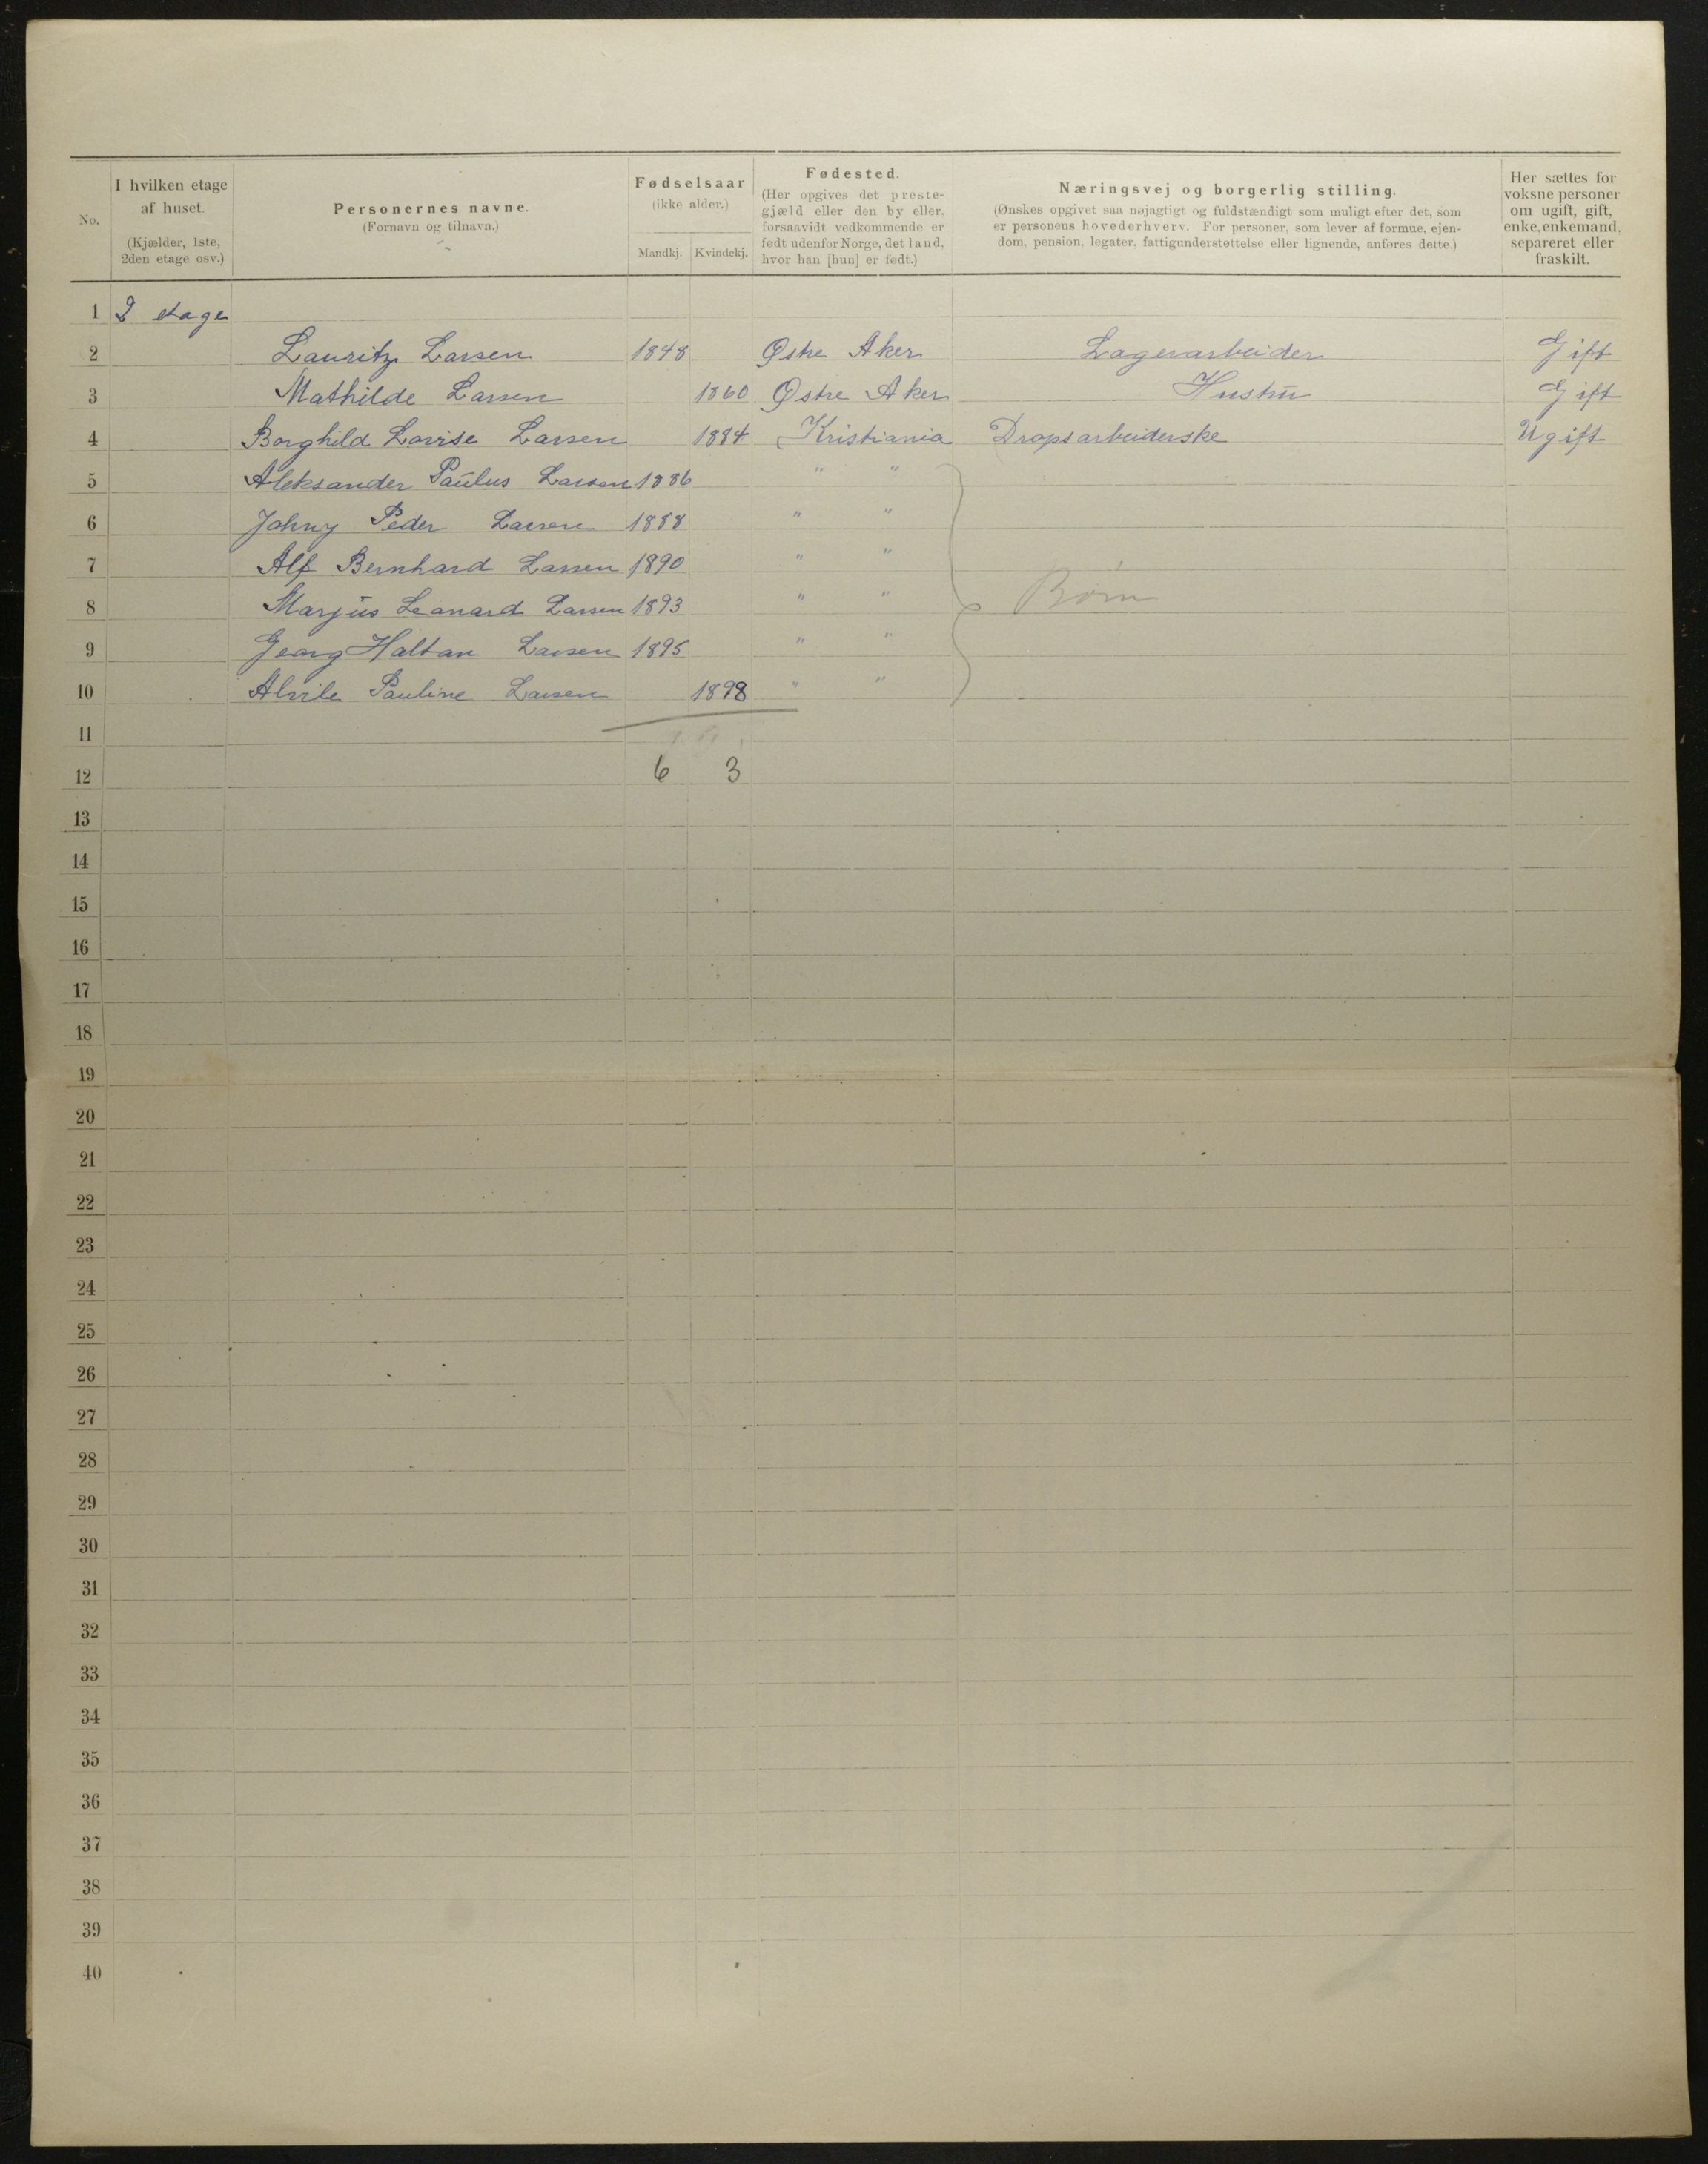 No.
I hvilken etage
af huset.
(Kjælder, 1ste,
2den etage osv.)
Personernes navne.
(Fornavn og tilnavn.)
Fødselsaar
(ikke alder.)
Mandkj. Kvindekj.
Fødested.
(Her opgives det preste-
gjæld eller den by eller,
forsaavidt vedkommende er
født udenfor Norge, det land,
hvor han [hun] er født.)
Næringsvej og borgerlig stilling.
(Ønskes opgivet saa nøjagtigt og fuldstændigt som muligt efter det, som
er personens hovederhverv. For personer, som lever af formue, ejen-
dom, pension, legater, fattigunderstøttelse eller lignende, anføres dette.)
Her sættes for
voksne personer
om ugift, gift,
enke, enkemand,
separeret eller
fraskilt.
1 2 etage
2 Lauritz Larsen 1848 Østre Aker Lagerarbeider Gift
3 Mathilde Larsen 1860 Østre Aker Hustru Gift
4 Borghild Lovise Larsen 1884 Kristiania Dropsarbeiderske Ugift
5 Aleksander Paulus Larsen 1886 " "
6 Johny Peder Larsen 1888 " "
7 Alf Bernhard Larsen 1890 " "
8 Marjus Leonard Larsen 1893 " " Børn
9 Georg Halfan Larsen 1895 " "
10 Pauline Larsen 1898 " "
11
12 6 3
13
14
15
16
17
18
19
20
21
22
23
24
25
26
27
28
29
30
31
32
33
34
35
36
37
38
39
40